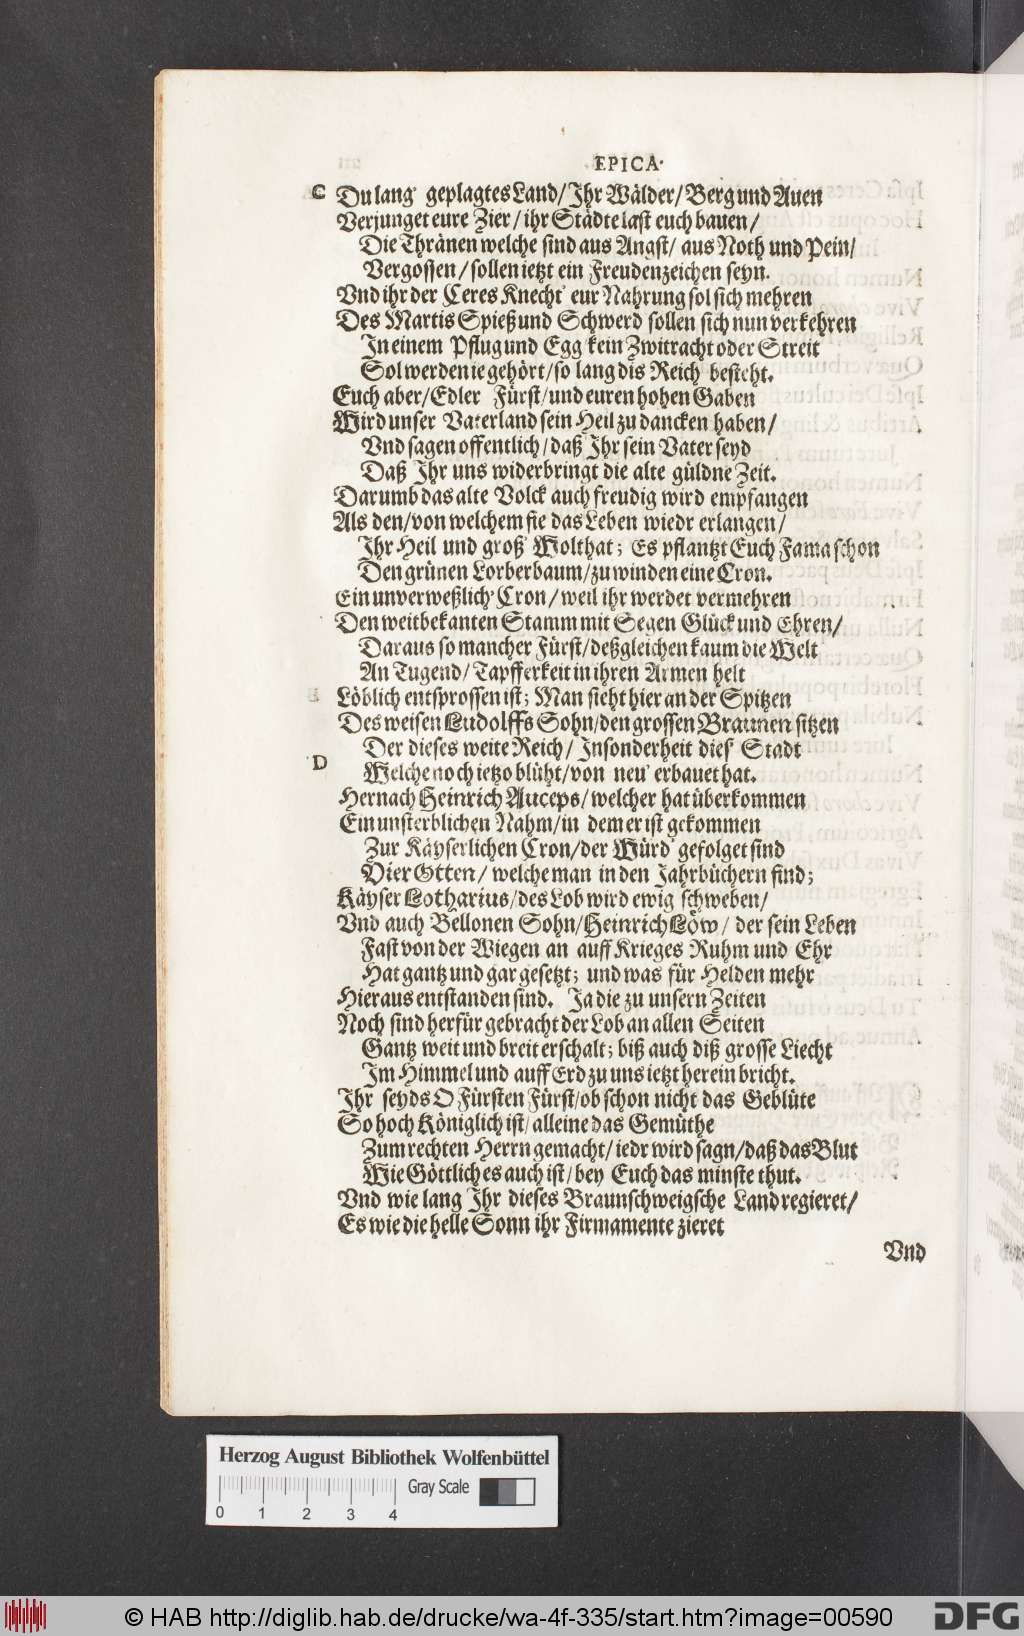 EPICA.
C Du lang' geplagtes Land/ Jhr Wälder/ Berg und Auen
Verjunget eure Zier/ ihr Städte last euch bauen/
Die Thränen welche sind aus Angst/ aus Noth und Pein/
Vergossen/ sollen ietzt ein Freudenzeichen seyn.
Vnd ihr der Ceres Knecht' eur Nahrung sol sich mehren
Des Martis Spieß und Schwerd sollen sich nun verkehren
Jn einem Pflug und Egg' kein Zwitracht oder Streit
Sol werden ie gehört/ so lang dis Reich besteht.
Euch aber/ Edler Fürst/ und euren hohen Gaben
Wird unser Vaterland sein Heil zu dancken haben/
Vnd sagen offentlich/ daß Jhr sein Vater seyd
Daß Jhr uns widerbringt die alte güldne Zeit.
Darumb das alte Volck auch freudig wird empfangen
Als den/ von welchem sie das Leben wiedr erlangen/
Jhr Heil und groß' Wolthat; Es pflantzt Euch Fama schon
Den grünen Lorberbaum/ zu winden eine Cron.
Ein unverweßlich' Cron/ weil ihr werdet vermehren
Den weitbekanten Stamm mit Segen Glück und Ehren/
Daraus so mancher Fürst/ deßgleichen kaum die Welt
An Tugend/ Tapfferkeit in ihren Armen helt
Löblich entsprossen ist; Man sieht hier an der Spitzen
Des weisen Ludolffs Sohn/ den grossen Braunen sitzen
Der dieses weite Reich/ Jnsonderheit dies' Stadt
D Welche noch ietzo blüht/ von neu' erbauet hat.
Hernach Heinrich Auceps/ welcher hat überkommen
Ein unsterblichen Nahm/ in dem er ist gekommen
Zur Käyserlichen Cron/ der Würd' gefolget sind
Vier Otten/ welche man in den Jahrbüchern find;
Käyser Lotharius/ des Lob wird ewig schweben/
Vnd auch Bellonen Sohn/ Heinrich Löw/ der sein Leben
Fast von der Wiegen an auff Krieges Ruhm und Ehr
Hat gantz und gar gesetzt; und was für Helden mehr
Hieraus entstanden sind. Ja die zu unsern Zeiten
Noch sind herfür gebracht der Lob an allen Seiten
Gantz weit und breit erschalt; biß auch diß grosse Liecht
Jm Himmel und auff Erd zu uns ietzt herein bricht.
Jhr seyds O Fürsten Fürst/ ob schon nicht das Geblüte
So hoch Königlich ist/ alleine das Gemüthe
Zum rechten Herrn gemacht/ iedr wird sagn/ daß das Blut
Wie Göttlich es auch ist/ bey Euch das minste thut.
Vnd wie lang Jhr dieses Braunschweigsche Land regieret/
Es wie die helle Sonn ihr Firmamente zieret
Vnd
Herzog August Bibliothek Wolfenbüttel
Gray Scale
0 1 2 3 4
© HAB http://diglib.hab.de/drucke/wa-4f-335/start.htm?image=00590
DFG